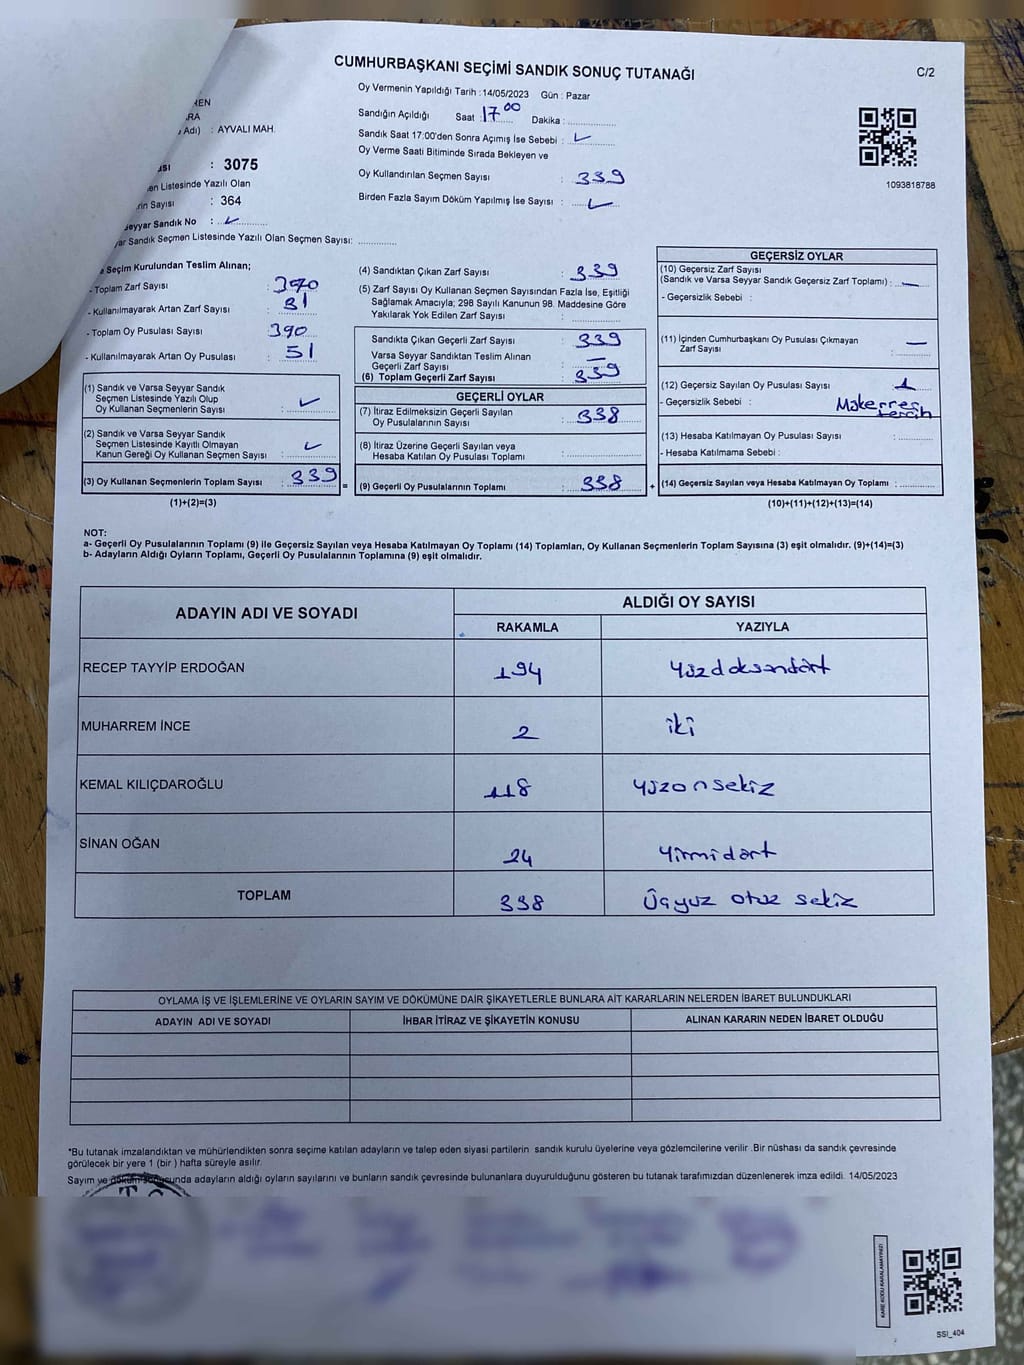 CUMHURBAŞKANI SEÇİMİ SANDIK SONUÇ TUTANAĞI
C/2
Oy Vermenin Yapıldığı Tarih : 14/05/2023 Gün : Pazar
Sandığın Açıldığı Saat : 17 00 Dakika :
Sandık Saat 17:00'den Sonra Açımış İse Sebebi :
Oy Verme Saati Bitiminde Sırada Bekleyen ve
Oy Kullandırılan Seçmen Sayısı : 339
Birden Fazla Sayım Döküm Yapılmış İse Sayısı :
1093818788
: AYVALI MAH.
: 3075
Listesinde Yazılı Olan
Sayısı : 364
Sandık No :
Sandık Seçmen Listesinde Yazılı Olan Seçmen Sayısı:
Seçim Kurulundan Teslim Alınan;
- Toplam Zarf Sayısı : 370
- Kullanılmayarak Artan Zarf Sayısı : 31
- Toplam Oy Pusulası Sayısı : 390
- Kullanılmayarak Artan Oy Pusulası : 51
(1) Sandık ve Varsa Seyyar Sandık
Seçmen Listesinde Yazılı Olup
Oy Kullanan Seçmenlerin Sayısı :
(2) Sandık ve Varsa Seyyar Sandık
Seçmen Listesinde Kayıtlı Olmayan
Kanun Gereği Oy Kullanan Seçmen Sayısı :
(3) Oy Kullanan Seçmenlerin Toplam Sayısı : 339
(1)+(2)=(3)
=
(4) Sandıktan Çıkan Zarf Sayısı : 339
(5) Zarf Sayısı Oy Kullanan Seçmen Sayısından Fazla İse, Eşitliği
Sağlamak Amacıyla; 298 Sayılı Kanunun 98. Maddesine Göre
Yakılarak Yok Edilen Zarf Sayısı :
Sandıkta Çıkan Geçerli Zarf Sayısı : 339
Varsa Seyyar Sandıktan Teslim Alınan
Geçerli Zarf Sayısı : —
(6) Toplam Geçerli Zarf Sayısı : 339
GEÇERLİ OYLAR
(7) İtiraz Edilmeksizin Geçerli Sayılan
Oy Pusulalarının Sayısı : 338
(8) İtiraz Üzerine Geçerli Sayılan veya
Hesaba Katılan Oy Pusulası Toplamı :
(9) Geçerli Oy Pusulalarının Toplamı : 338
+
GEÇERSİZ OYLAR
(10) Geçersiz Zarf Sayısı
(Sandık ve Varsa Seyyar Sandık Geçersiz Zarf Toplamı) : —
- Geçersizlik Sebebi :
(11) İçinden Cumhurbaşkanı Oy Pusulası Çıkmayan
Zarf Sayısı : —
(12) Geçersiz Sayılan Oy Pusulası Sayısı : 1
- Geçersizlik Sebebi : Mükerrer
tercih
(13) Hesaba Katılmayan Oy Pusulası Sayısı :
- Hesaba Katılmama Sebebi :
(14) Geçersiz Sayılan veya Hesaba Katılmayan Oy Toplamı :
(10)+(11)+(12)+(13)=(14)
NOT:
a- Geçerli Oy Pusulalarının Toplamı (9) ile Geçersiz Sayılan veya Hesaba Katılmayan Oy Toplamı (14) Toplamları, Oy Kullanan Seçmenlerin Toplam Sayısına (3) eşit olmalıdır. (9)+(14)=(3)
b- Adayların Aldığı Oyların Toplamı, Geçerli Oy Pusulalarının Toplamına (9) eşit olmalıdır.
ADAYIN ADI VE SOYADI
ALDIĞI OY SAYISI
RAKAMLA YAZIYLA
RECEP TAYYİP ERDOĞAN 194 Yüzdoksandört
MUHARREM İNCE 2 iki
KEMAL KILIÇDAROĞLU 118 Yüzonsekiz
SİNAN OĞAN 24 Yirmidört
TOPLAM 338 Üçyüz otuz sekiz
OYLAMA İŞ VE İŞLEMLERİNE VE OYLARIN SAYIM VE DÖKÜMÜNE DAİR ŞİKAYETLERLE BUNLARA AİT KARARLARIN NELERDEN İBARET BULUNDUKLARI
ADAYIN ADI VE SOYADI İHBAR İTİRAZ VE ŞİKAYETİN KONUSU ALINAN KARARIN NEDEN İBARET OLDUĞU
*Bu tutanak imzalandıktan ve mühürlendikten sonra seçime katılan adayların ve talep eden siyasi partilerin sandık kurulu üyelerine veya gözlemcilerine verilir. Bir nüshası da sandık çevresinde
görülecek bir yere 1 (bir ) hafta süreyle asılır.
Sayım ve döküm sonucunda adayların aldığı oyların sayılarını ve bunların sandık çevresinde bulunanlara duyurulduğunu gösteren bu tutanak tarafımızdan düzenlenerek imza edildi. 14/05/2023
KARE KODU KARALAMAYINIZ!
SSI_404